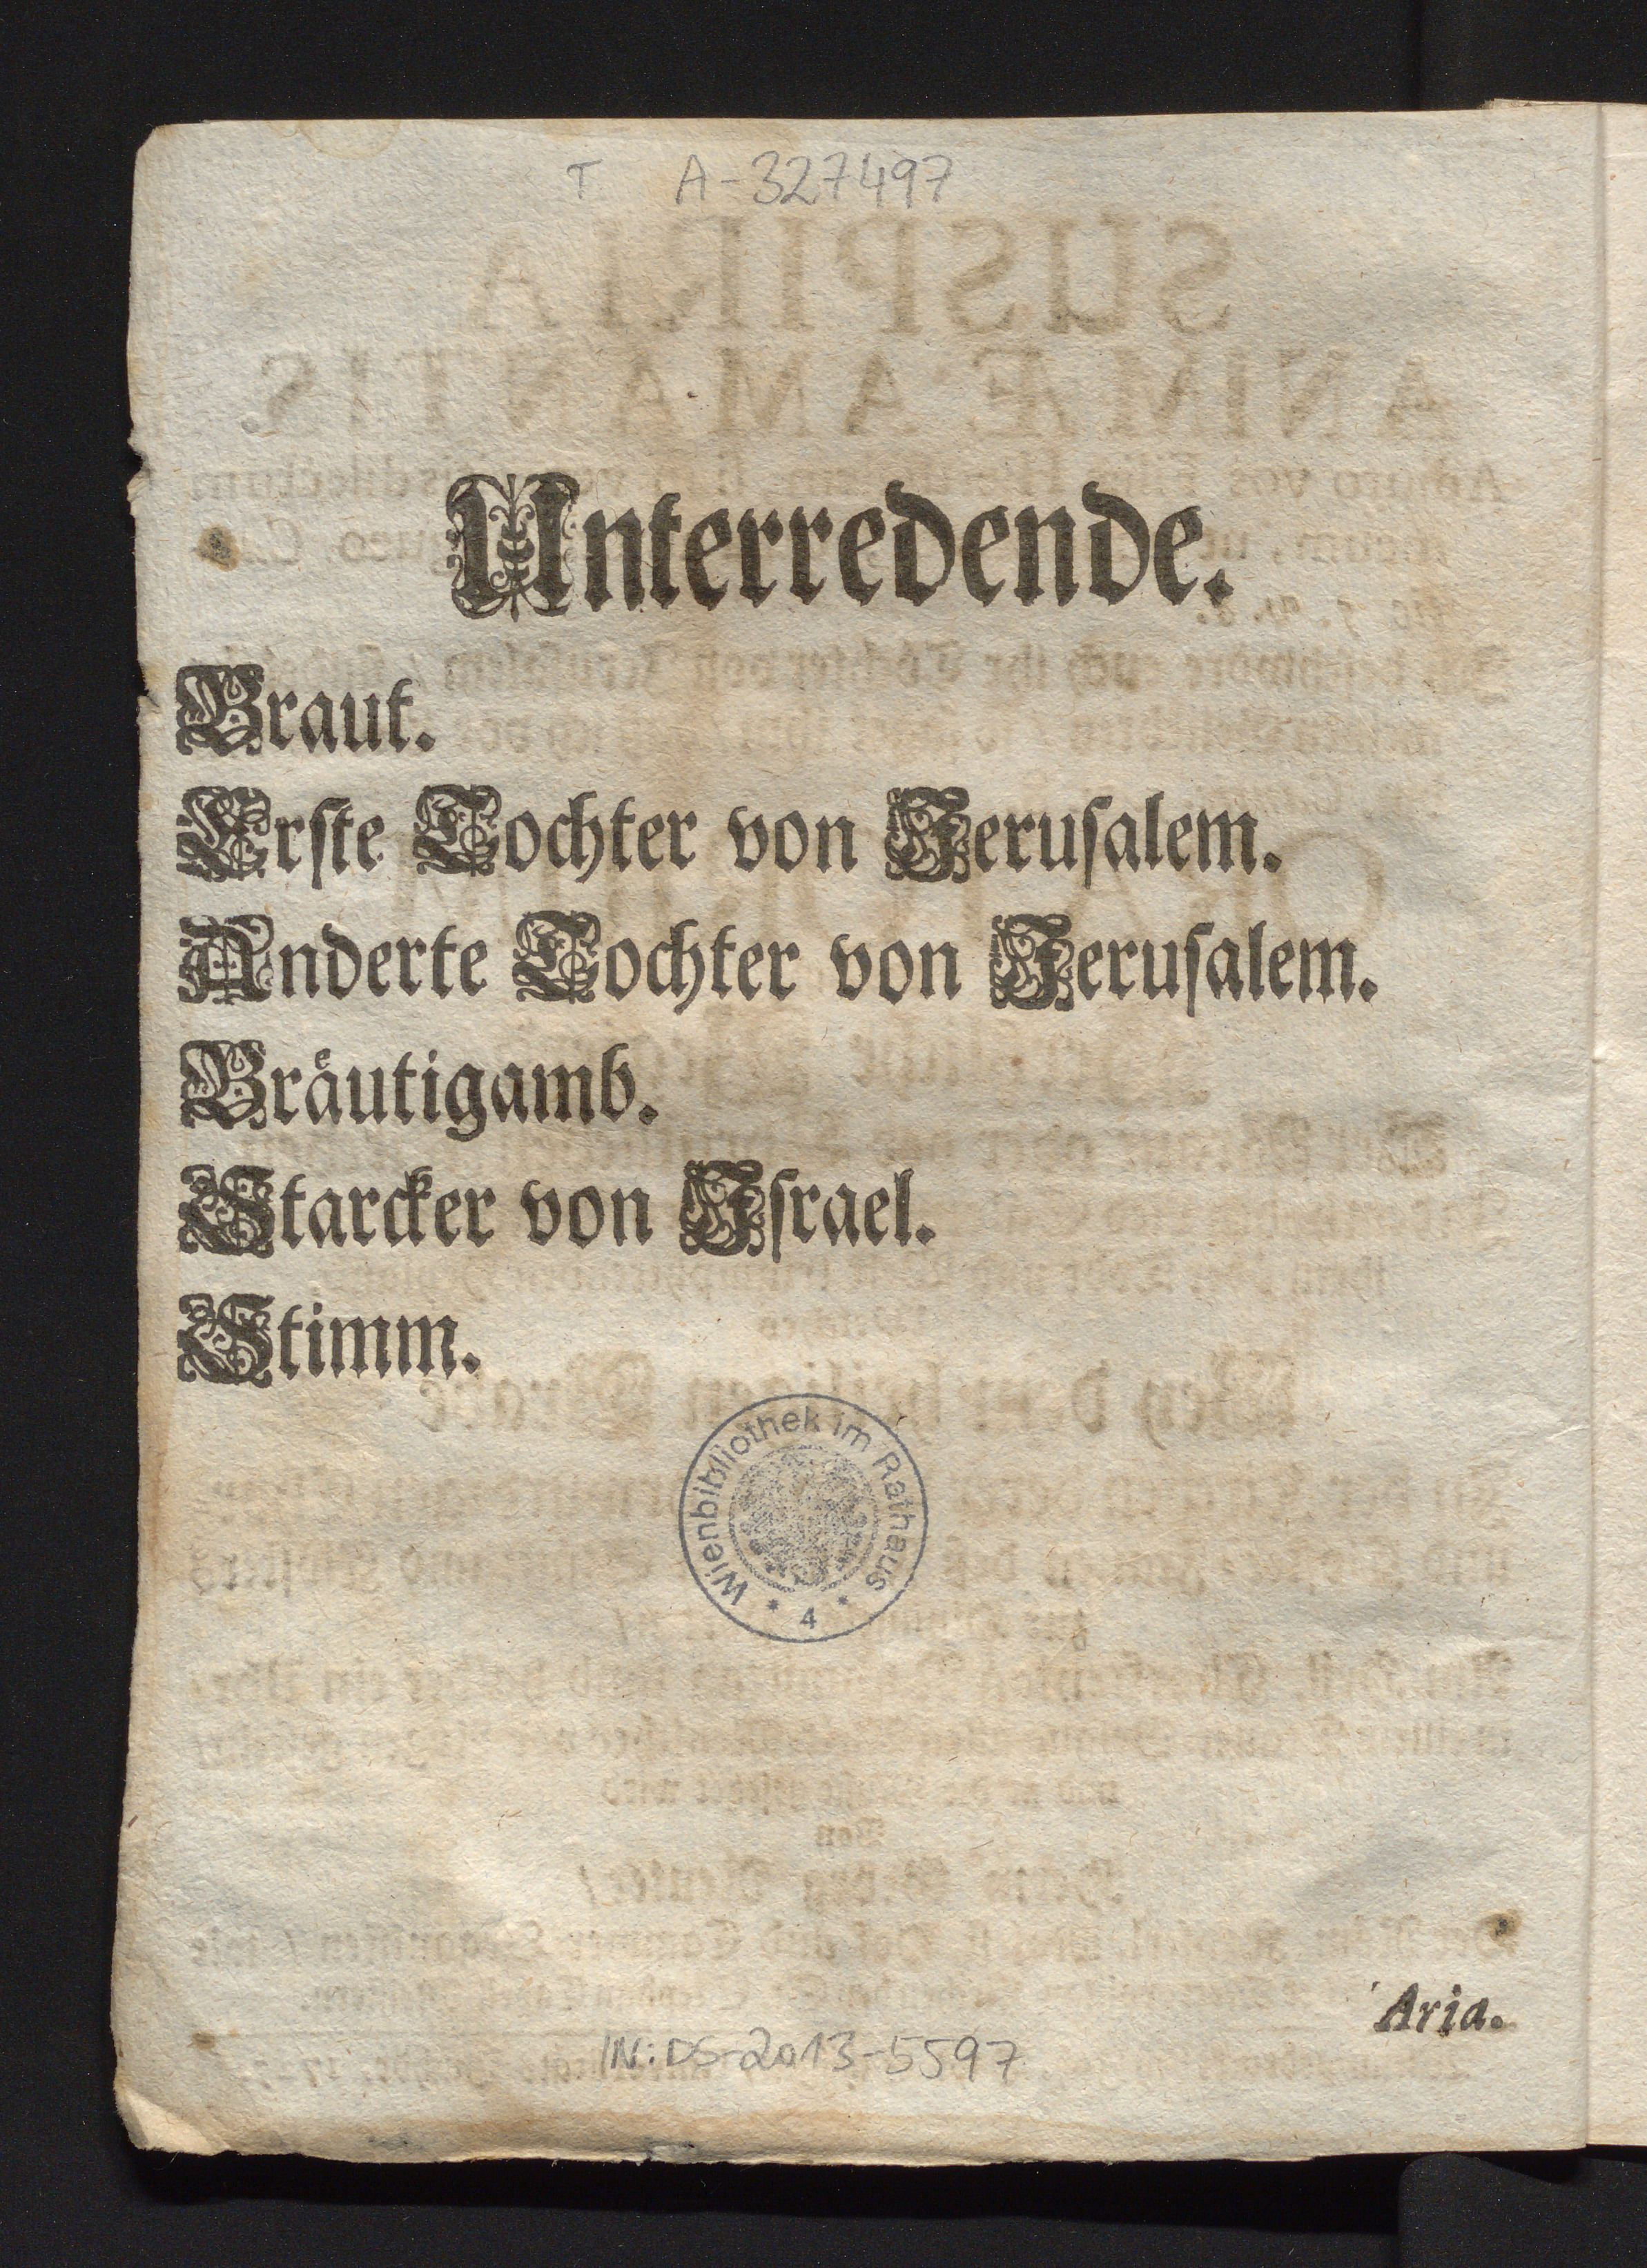 T A-327497
Unterredende.
Braut.
Erste Tochter von Jerusalem.
Anderte Tochter von Jerusalem.
Bräutigamb.
Starcker von Israel.
Stimm.
Wienbibliothek im Rathaus
* 4 *
Aria.
IN: DS-2013-5597